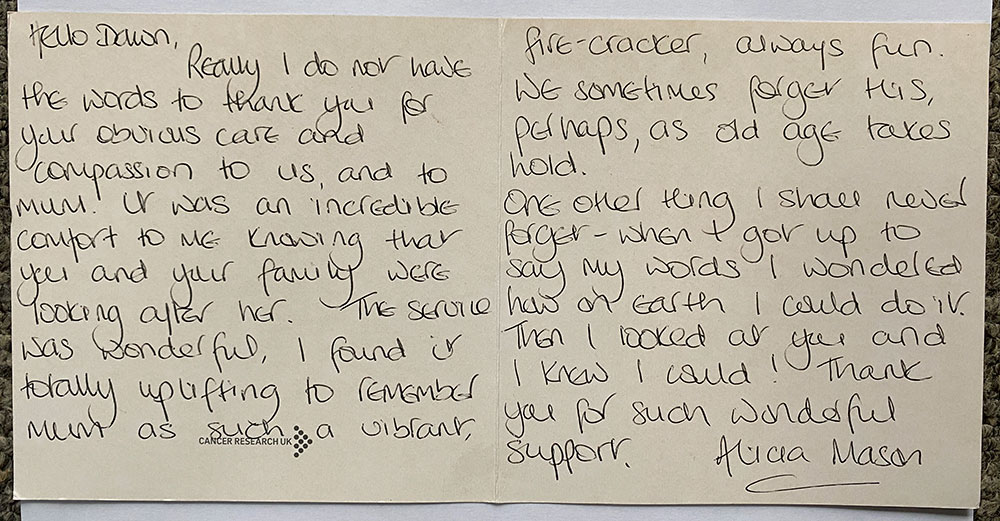 Hello Dawn,
Really I do not have
the words to thank you for
your obvious care and
compassion to us, and to
mum. It was an incredible
comfort to me knowing that
you and your family were
looking after her. The service
was wonderful, I found it
totally uplifting to remember
mum as such a vibrant,
CANCER RESEARCH UK
fire-cracker, always fun.
We sometimes forget this,
perhaps, as old age takes
hold.
One other thing I shall never
forget - when I got up to
say my words I wondered
how on earth I could do it.
Then I looked at you and
I knew I could! Thank
you for such wonderful
support. Alicia Mason